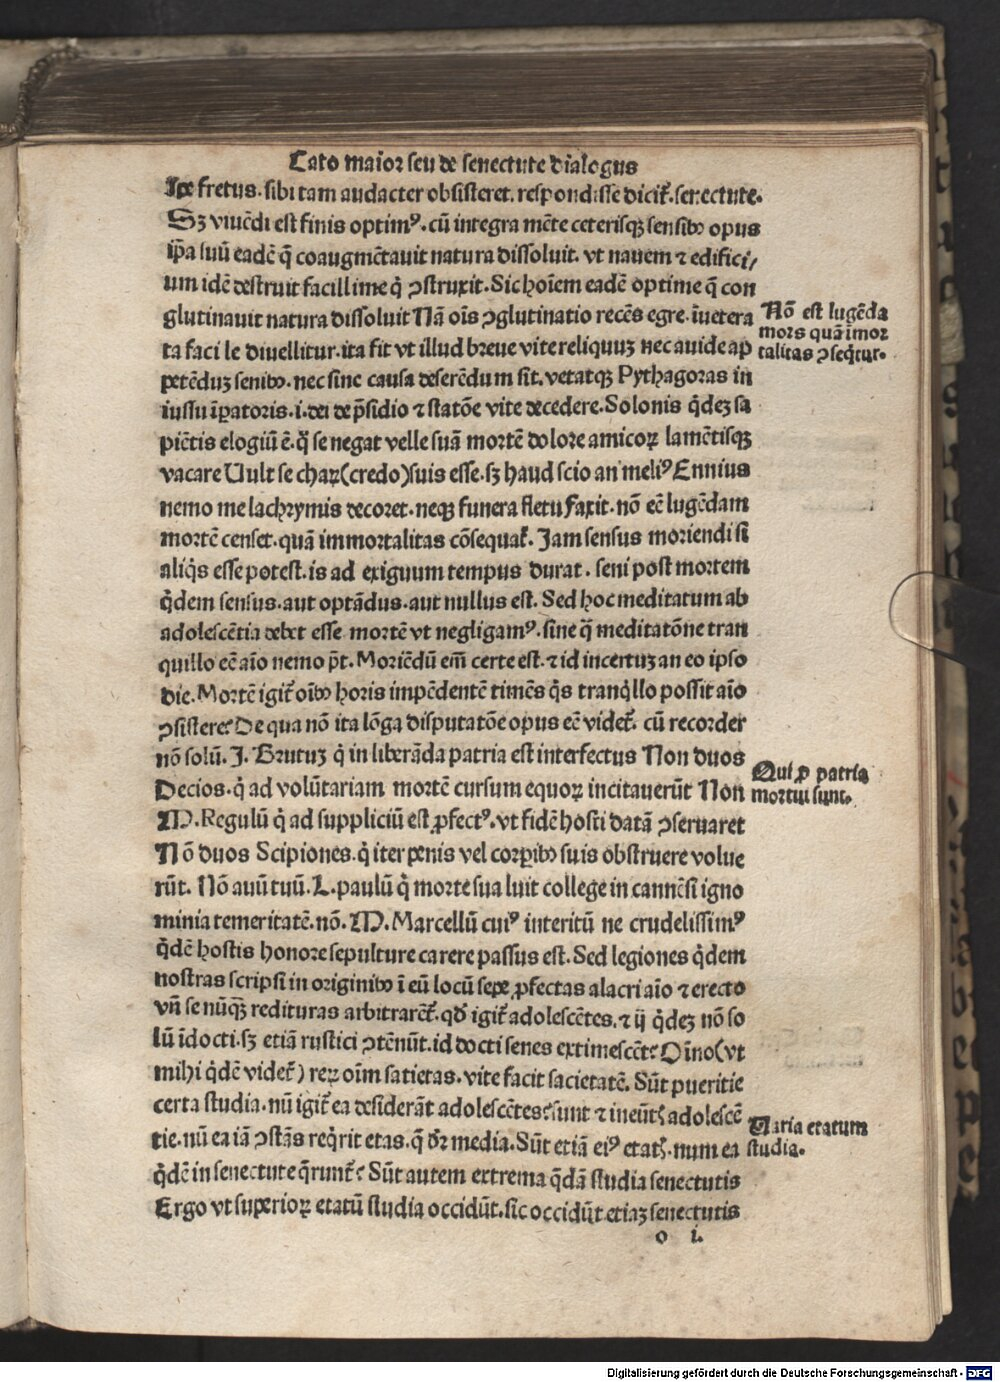 Cato maior seu de senectute dialogus
Ipẽ fretus. sibi tam audacter obsisteret. respondisse dicit᷑. senectute.
Sꝫ viuẽdi est finis optimꝰ. cũ integra mẽte ceterisqꝫ sensibꝰ opus
ip̃a suũ eadẽ q̃ coaugmẽtauit natura dissoluit. vt nauem ⁊ edifici/
um idẽ destruit facillime q̇ ꝯstruxit. Sic hoĩem eadẽ optime q̃ con
glutinauit natura dissoluit Nã oĩs ꝯglutinatio recẽs egre. ĩuetera
ta faci le diuellitur. ita fit vt illud breue vite reliquuꝫ nec auide ap
petẽduꝫ senibꝰ. nec sine causa deserẽdum sit. vetatqꝫ Pythagoras in
iussu ĩpatoris. i. dei de p̃sidio ⁊ statõe vite decedere. Solonis q̇deꝫ sa
piẽtis elogiũ ẽ. q̃ se negat velle suã mortẽ dolore amicoꝝ lamẽtisqꝫ
vacare Uult se chaꝝ(credo)suis esse. sꝫ haud scio an meliꝰ Ennius
nemo me lachrymis decoret. neqꝫ funera fletu faxit. nõ eẽ lugẽdam
mortẽ censet. quã immortalitas cõsequat᷑. Jam sensus moriendi si
aliq̇s esse potest. is ad exiguum tempus durat. seni post mortem
q̇dem sensus. aut optãdus. aut nullus est. Sed hoc meditatum ab
adolescẽtia debet esse mortẽ vt negligamꝰ. sine q̃ meditatõne tran
quillo eẽ aĩo nemo p̃t. Moriẽdũ em̃ certe est. ⁊ id incertuꝫ an eo ipso
die. Mortẽ igit᷑ oĩbꝰ horis impẽdentẽ timẽs q̇s tranq̇llo possit aĩo
ꝯsistere? De qua nõ ita lõga disputatõe opus eẽ videt᷑. cũ recorder
nõ solũ. J. Brutuꝫ q̇ in liberãda patria est interfectus Non duos
Decios. q̇ ad volũtariam mortẽ cursum equoꝝ incitauerũt Non
M. Regulũ q̇ ad suppliciũ est ꝓfectꝰ. vt fidẽ hosti datã ꝯseruaret
Nõ duos Scipiones. q̇ iter penis vel corꝑibꝰ suis obstruere volue
rũt. Nõ auũ tuũ. L. paulũ q̇ morte sua luit college in cannẽsi igno
minia temeritatẽ. nõ. M. Marcellũ cuiꝰ interitũ ne crudelissimꝰ
q̇dẽ hostis honore sepulture carere passus est. Sed legiones q̇dem
nostras scripsi in originibꝰ ĩ eũ locũ sepe ꝓfectas alacri aĩo ⁊ erecto
vñ se nũqꝫ redituras arbitrarẽt᷑. qđ igit᷑ adolescẽtes. ⁊ ij q̇deꝫ nõ so
lũ ĩdocti. sꝫ etiã rustici ꝯtẽnũt. id docti senes extimescẽt? Oĩno(vt
mihi q̇dẽ videt᷑) reꝝ oĩm satietas. vite facit sacietatẽ. Sũt pueritie
certa studia. nũ igit᷑ ea desiderãt adolescẽtes? sunt ⁊ ineũtꝭ adolescẽ
tie. nũ ea iã ꝯstãs req̇rit etas. q̃ dr̃ media. Sũt etiã eiꝰ etatꝭ. num ea
q̇dẽ in senectute q̃runt᷑? Sũt autem extrema q̃dã studia senectutis
Ergo vt superioꝝ etatũ studia occidũt. sic occidũt etiaꝫ senectutis
o i.
Nõ est lugẽda
mors quã ĩmor
talitas ꝯseq̃tur.
Qui ꝓ patria
mortui sunt.
Uaria etatum
studia.
Digitalisierung gefördert durch die Deutsche Forschungsgemeinschaft - DFG